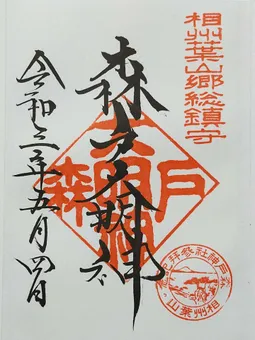 相州葉山郷総鎮守
森戸大明神
令和三年五月四日
森戸
大明神
森戸神社参拝記念
相州葉山